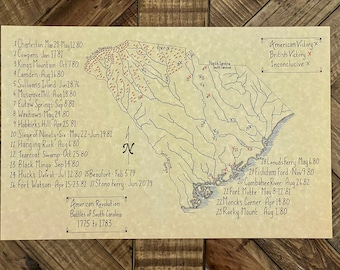 American Victory X
British Victory X
Inconclusive X
1 Charleston Mar 29-May 12, 80
2 Cowpens Jan 17 81
3 Kings Mountain Oct 7 80
4 Camden Aug 16 80
5 Sullivans Island Jun 28 76
6 Musgroves Mill Aug 18 80
7 Eutaw Springs Sep 8 81
8 Waxhaws May 29 80
9 Hobkirks Hill Apr 25 81
10 Siege of Ninety-Six May 22-Jun 19 81
11 Hanging Rock Aug 80
12 Tearcoat Swamp Oct 25 80
13 Black Mingo Sep 80
14 Hucks Defeat Jul 12 80
15 Beaufort Feb 3 79
16 Fort Watson Apr 15-23 81
17 Stono Ferry Jun 20 79
N
North Carolina
South Carolina
18 Lenuds Ferry May 6 80
20 Combahee River Aug 26 82
21 Fort Motte May 8-12 81
22 Moncks Corner Apr 14 80
23 Rocky Mount Aug 1 80
American Revolution
Battles of South Carolina
1775 to 1783